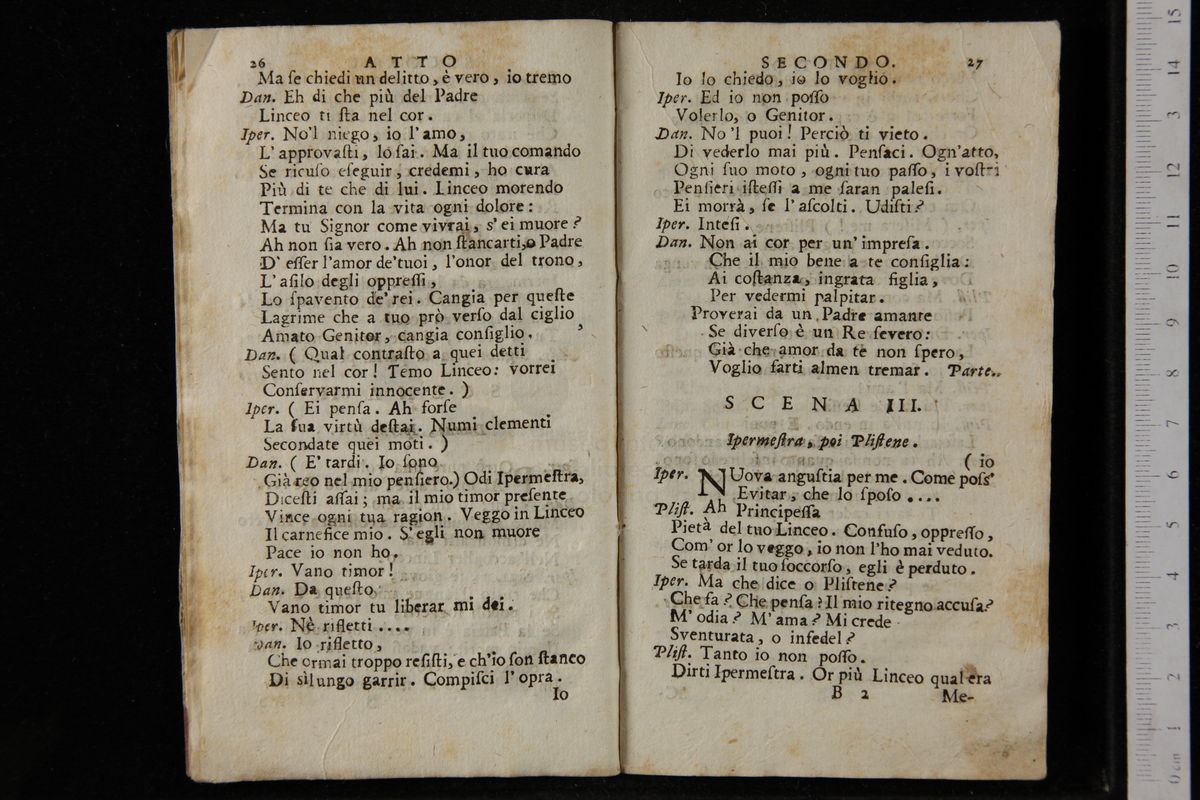 26 ATTO
Ma ſe chiedi un delitto, è vero, io tremo
Dan. Eh di che più del Padre
Linceo ti ſta nel cor.
Iper. No'l niego, io l'amo,
L'approvaſti, lo ſai. Ma il tuo comando
Se ricuſo eſeguir, credemi, ho cura
Più di te che di lui. Linceo morendo
Termina con la vita ogni dolore:
Ma tu Signor come vivrai, s'ei muore?
Ah non ſia vero. Ah non ſtancarti, o Padre
D'eſſer l'amor de'tuoi, l'onor del trono,
L'aſilo degli oppreſſi,
Lo ſpavento de' rei. Cangia per queſte
Lagrime che a tuo prò verſo dal ciglio
Amato Genitor, cangia conſiglio.
Dan. ( Qual contraſto a quei detti
Sento nel cor! Temo Linceo: vorrei
Conſervarmi innocente. )
Iper. ( Ei penſa. Ah forſe
La ſua virtù deſtai. Numi clementi
Secondate quei moti. )
Dan. ( E' tardi. Io ſono
Già reo nel mio penſiero.) Odi Ipermeſtra,
Diceſti aſſai; ma il mio timor preſente
Vince ogni tua ragion. Veggo in Linceo
Il carnefice mio. S'egli non muore
Pace io non ho.
Iper. Vano timor!
Dan. Da queſto
Vano timor tu liberar mi dei.
Iper. Nè rifletti ....
Dan. Io rifletto,
Che ormai troppo reſiſti, e ch'io ſon ſtanco
Di sì lungo garrir. Compiſci l'opra.
Io
SECONDO. 27
Io lo chiedo, io lo voglio.
Iper. Ed io non poſſo
Volerlo, o Genitor.
Dan. No'l puoi! Perciò ti vieto.
Di vederlo mai più. Penſaci. Ogn'atto,
Ogni ſuo moto, ogni tuo paſſo, i voſtri
Penſieri iſteſſi a me ſaran paleſi.
Ei morrà, ſe l'aſcolti. Udiſti?
Iper. Inteſi.
Dan. Non ai cor per un'impreſa.
Che il mio bene a te conſiglia:
Ai coſtanza, ingrata figlia,
Per vedermi palpitar.
Proverai da un Padre amante
Se diverſo è un Re ſevero:
Già che amor da te non ſpero,
Voglio farti almen tremar. Parte.
SCENA III.
Ipermeſtra, poi Pliſtene.
( io
Iper. NUova anguſtia per me. Come poſſ'
Evitar, che lo ſpoſo ....
Pliſt. Ah Principeſſa
Pietà del tuo Linceo. Confuſo, oppreſſo,
Com' or lo veggo, io non l'ho mai veduto.
Se tarda il tuo ſoccorſo, egli è perduto.
Iper. Ma che dice o Pliſtene?
Che fa? Che penſa? Il mio ritegno accuſa?
M'odia? M'ama? Mi crede
Sventurata, o infedel?
Pliſt. Tanto io non poſſo.
Dirti Ipermeſtra. Or più Linceo qual era
B 2 Me-
15
14
13
12
11
10
9
8
7
6
5
4
3
2
1
0 cm